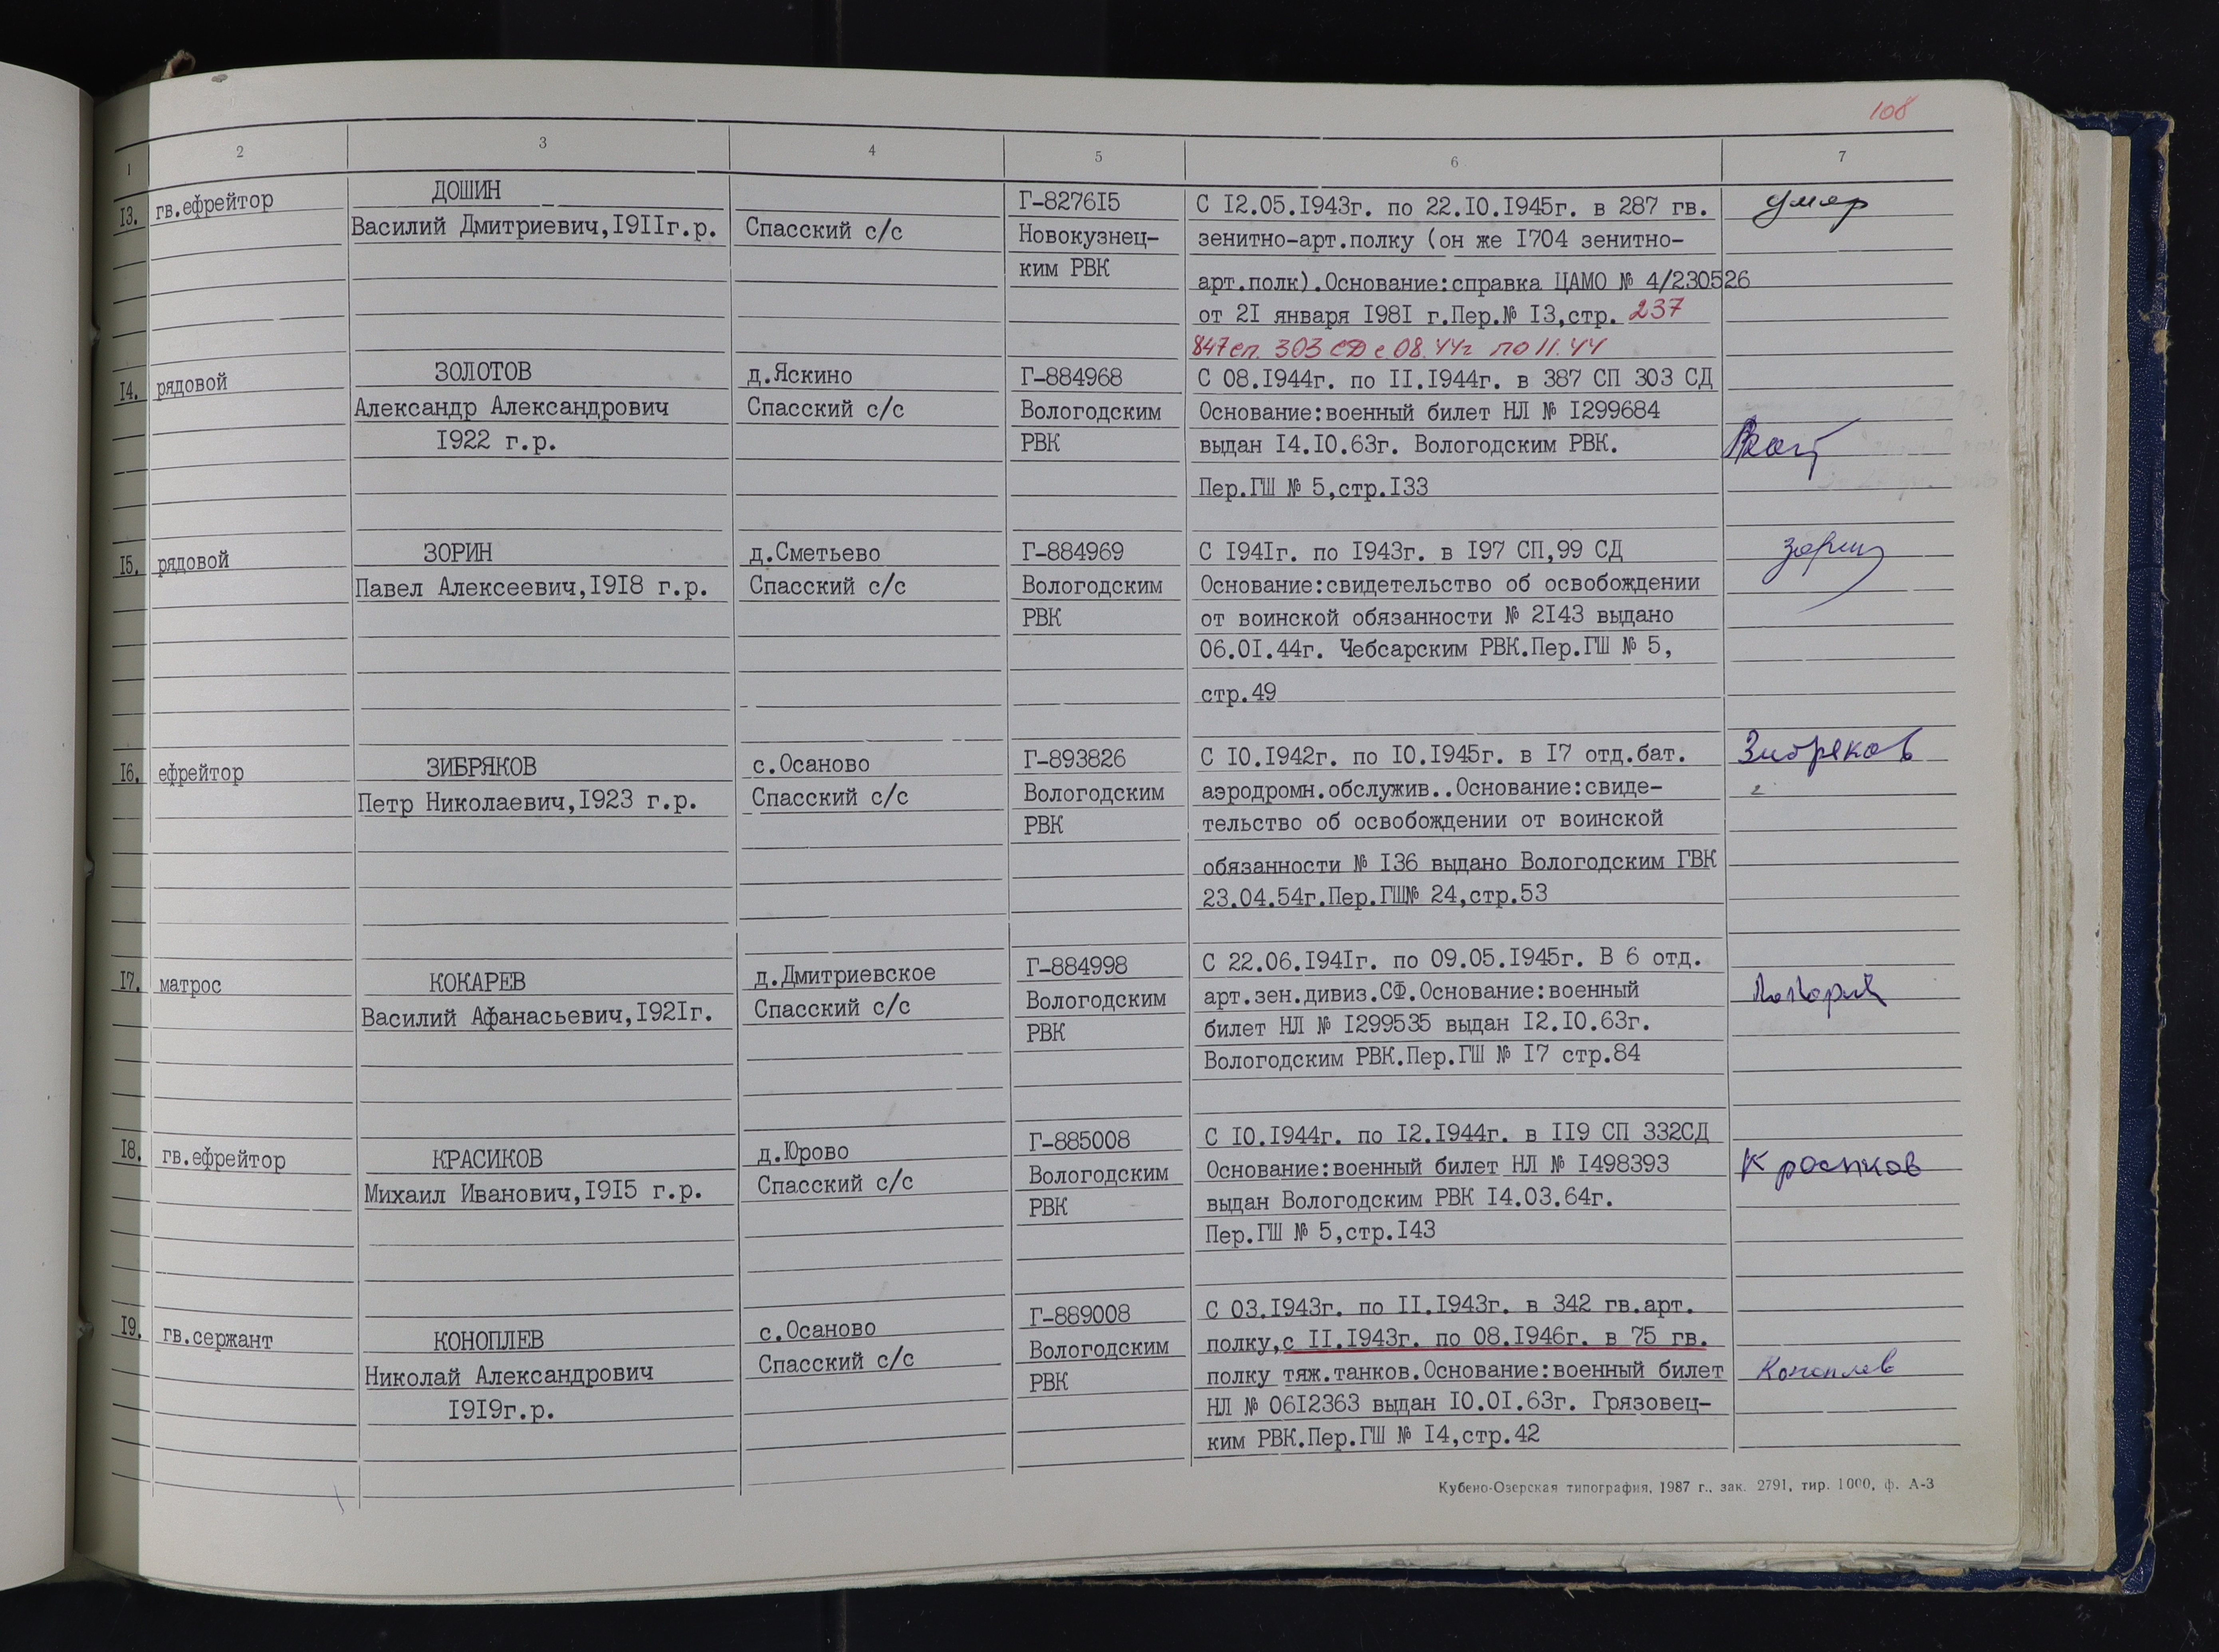 108
1 2 3 4 5 6 7
13. гв.ефрейтор
ДОШИН
Василий Дмитриевич,1911г.р.
Спасский с/с
Г-827615
Новокузнец-
ким РВК
С 12.05.1943г. по 22.10.1945г. в 287 гв.
зенитно-арт.полку (он же 1704 зенитно-
арт.полк).Основание:справка ЦАМО № 4/230526
от 21 января 1981 г.Пер.№ 13,стр. 237
847 сп. 303 СД с 08.44г по 11.44
умер
14. рядовой
ЗОЛОТОВ
Александр Александрович
1922 г.р.
д.Яскино
Спасский с/с
Г-884968
Вологодским
РВК
С 08.1944г. по 11.1944г. в 387 СП 303 СД
Основание:военный билет НЛ № 1299684
выдан 14.10.63г. Вологодским РВК.
Пер.ГШ № 5,стр.133
15. рядовой
ЗОРИН
Павел Алексеевич,1918 г.р.
д.Сметьево
Спасский с/с
Г-884969
Вологодским
РВК
С 1941г. по 1943г. в 197 СП,99 СД
Основание:свидетельство об освобождении
от воинской обязанности № 2143 выдано
06.01.44г. Чебсарским РВК.Пер.ГШ № 5,
стр.49
Зорин
16. ефрейтор
ЗИБРЯКОВ
Петр Николаевич,1923 г.р.
с.Осаново
Спасский с/с
Г-893826
Вологодским
РВК
С 10.1942г. по 10.1945г. в 17 отд.бат.
аэродромн.обслужив..Основание:свиде-
тельство об освобождении от воинской
обязанности № 136 выдано Вологодским ГВК
23.04.54г.Пер.ГШ№ 24,стр.53
Зибряков
17. матрос
КОКАРЕВ
Василий Афанасьевич,1921г.
д.Дмитриевское
Спасский с/с
Г-884998
Вологодским
РВК
С 22.06.1941г. по 09.05.1945г. В 6 отд.
арт.зен.дивиз.СФ.Основание:военный
билет НЛ № 1299535 выдан 12.10.63г.
Вологодским РВК.Пер.ГШ № 17 стр.84
18. гв.ефрейтор
КРАСИКОВ
Михаил Иванович,1915 г.р.
д.Юрово
Спасский с/с
Г-885008
Вологодским
РВК
С 10.1944г. по 12.1944г. в 119 СП 332СД
Основание:военный билет НЛ № 1498393
выдан Вологодским РВК 14.03.64г.
Пер.ГШ № 5,стр.143
Красиков
19. гв.сержант
КОНОПЛЕВ
Николай Александрович
1919г.р.
с.Осаново
Спасский с/с
Г-889008
Вологодским
РВК
С 03.1943г. по 11.1943г. в 342 гв.арт.
полку,с 11.1943г. по 08.1946г. в 75 гв.
полку тяж.танков.Основание:военный билет
НЛ № 0612363 выдан 10.01.63г. Грязовец-
ким РВК.Пер.ГШ № 14,стр.42
Коноплев
Кубено-Озерская типография, 1987 г., зак. 2791, тир. 1000, ф. А-3